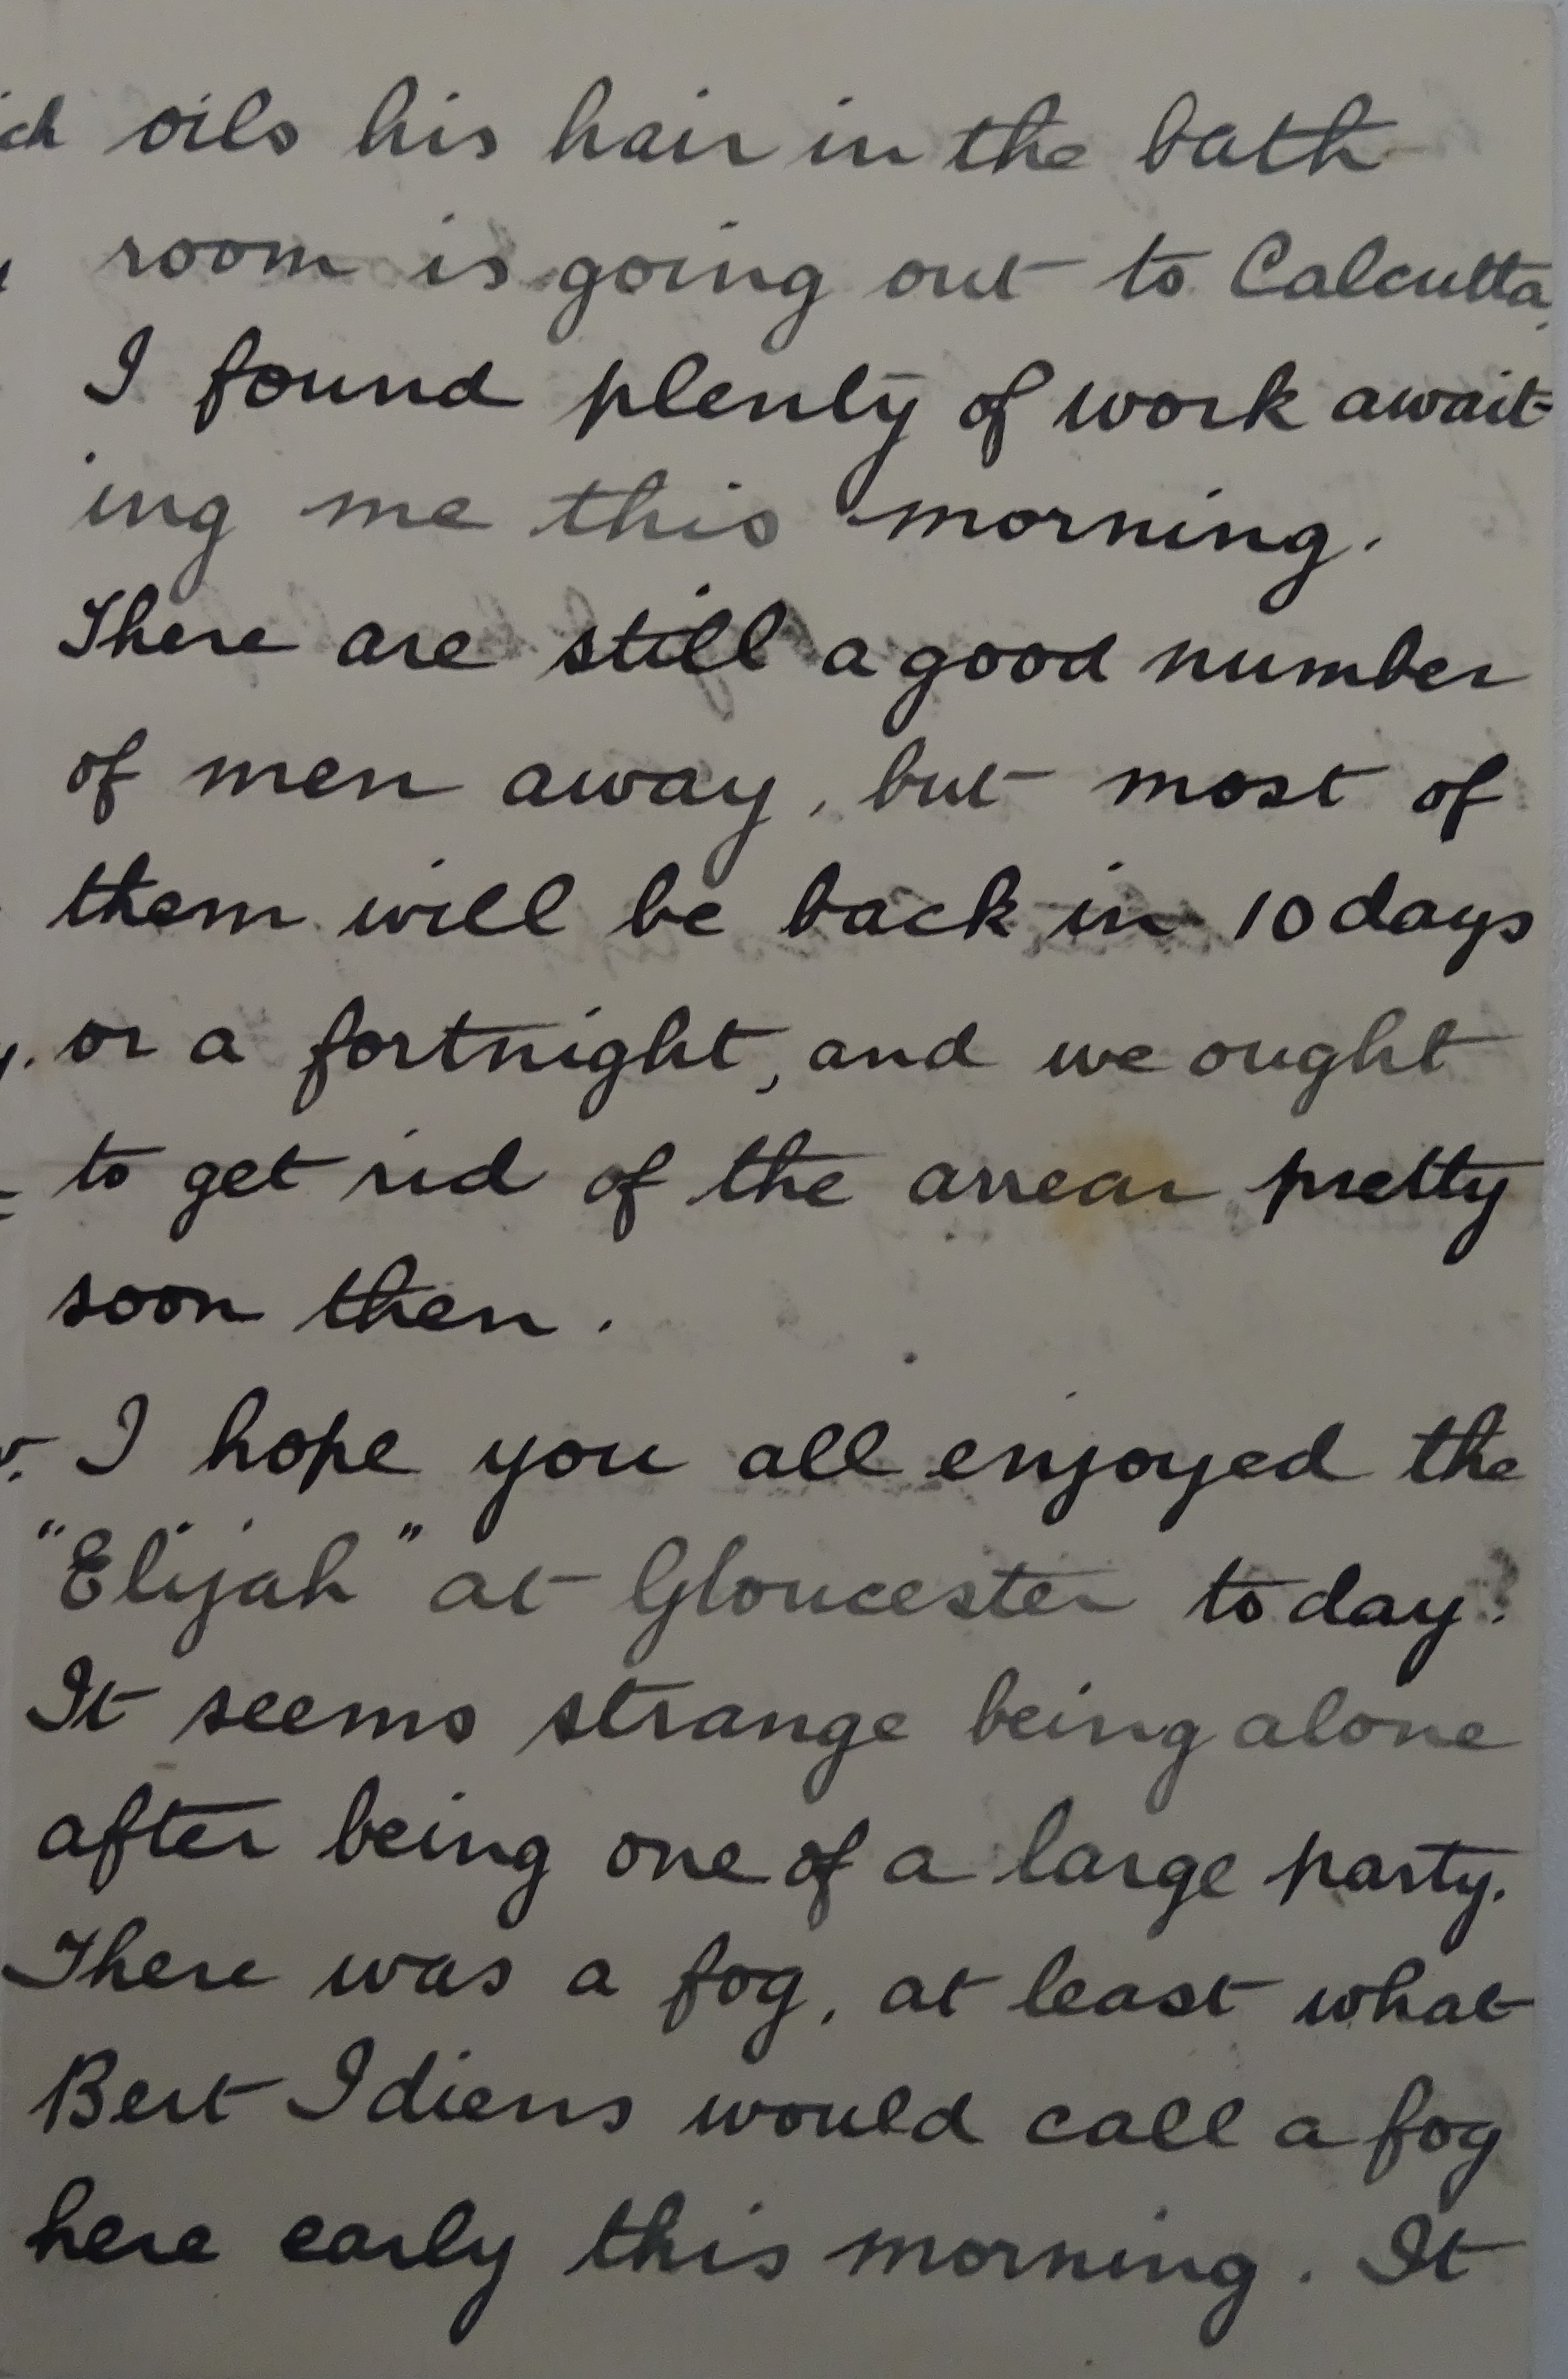 oils his hair in the bath
room is going out to Calcutta.
I found plenty of work await-
ing me this morning.
There are still a good number
of men away, but most of
them will be back in 10 days
or a fortnight, and we ought
to get rid of the arrear pretty
soon then.
I hope you all enjoyed the
"Elijah" at Gloucester today?
It seems strange being alone
after being one of a large party.
There was a fog, at least what
Bert Idiens would call a fog
here early this morning. It